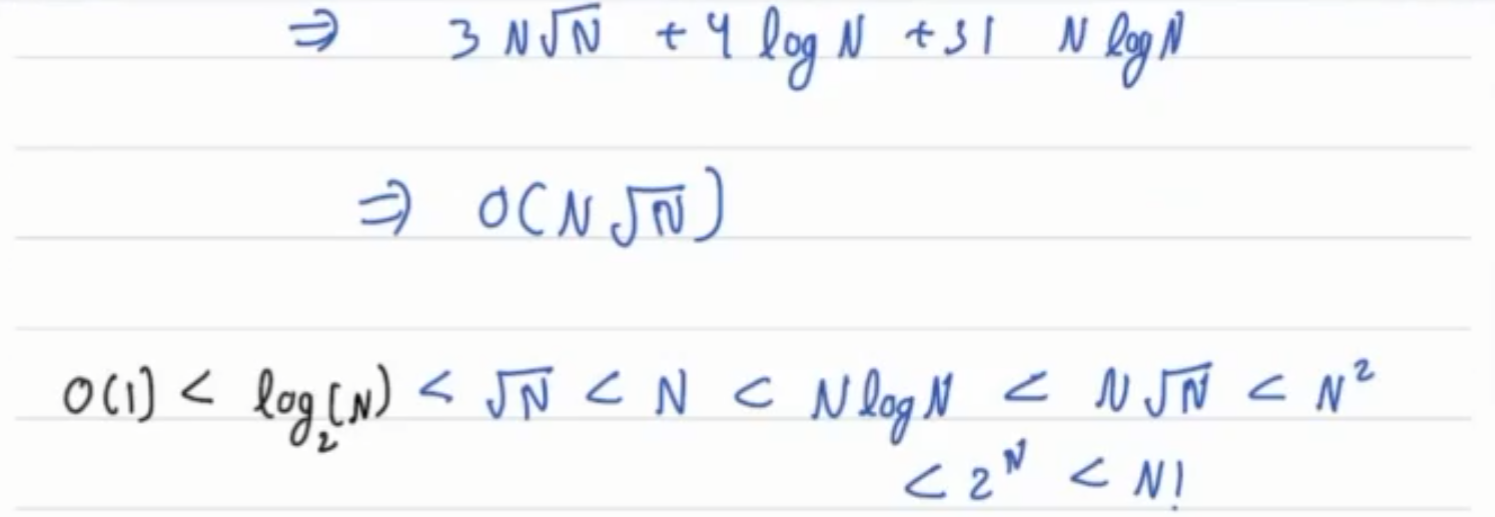 ⇒ 3 N√N + 4 log N + 31 N log N
⇒ O(N√N)
O(1) < log₂(N) < √N < N < N log N < N√N < N²
< 2ᴺ < N!